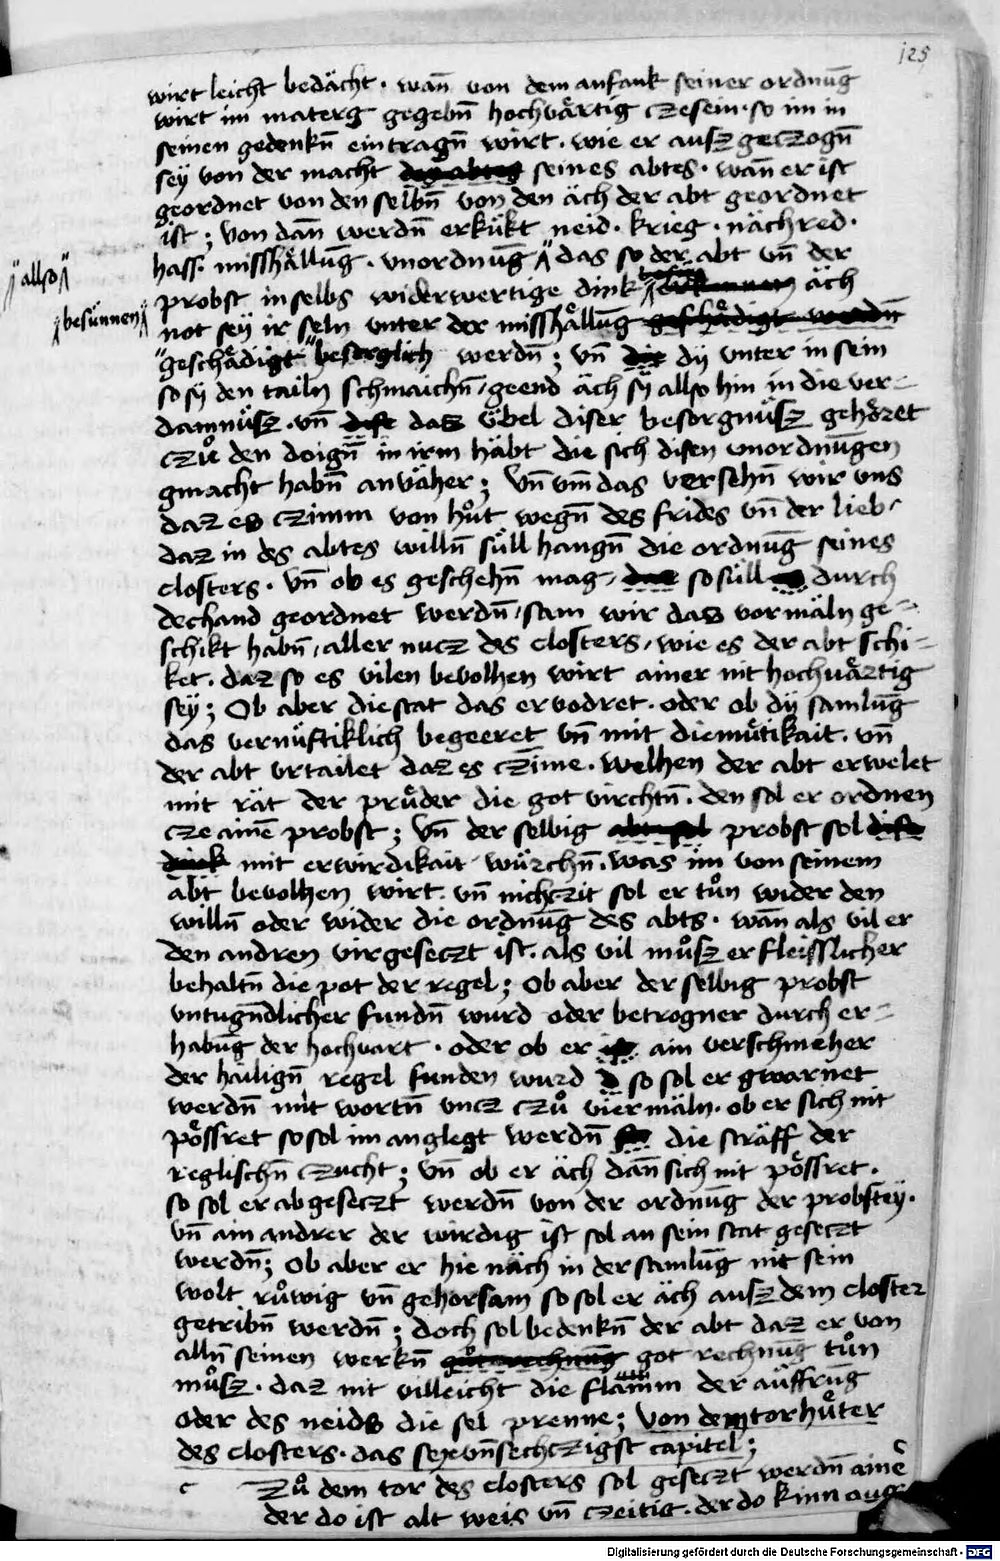 125
wirt leicht bedächt · wañ von dem anfank seiner ordnūg
wirt im materg gegebn̄ hochvärtig czesein · so im in
seinen gedenkn̄ eintragn̄ wirt · wie er ausz geczogn̄
sey von der macht seines abtes · wañ er ist
geordnet von den selbn̄ von den äch der abt geordnet
ist ; von dañ werdn̄ erkükt neid · krieg · nächred ·
hass · misshällūg · vnordnūg das so der abt vn̄ der
allso
probst in selbs widerwertige dink äch
besünnen
not sey ir seln vnter der misshällūg geschädigt werdn̄
geschädigt besorglich werdn̄ ; vn̄ die dÿ vnter in sein
so sÿ den tailn schmaichn̄ / geend äch sÿ allso hin in die ver=
damnüsz · vn̄ das übel diser besorgnüsz gehöret
czů den doign̄ in irm häbt die sich disen vnordnūgen
gmacht habn̄ anväher ; Vn̄ vm̄ das versehn̄ wir vns
daz es czimm von hůt wegn̄ des frides vn̄ der lieb /
daz in des abtes willn̄ süll hangn̄ die ordnūg seines
closters · vn̄ ob es geschehn̄ mag / so süll durch
dechand geordnet werdn̄ / sam wir das vormäln ge=
schikt habn̄ / aller nucz des closters / wie es der abt schi=
ket · daz so es vilen bevolhen wirt ainer nit hochvärtig
sey ; Ob aber die stat das ervodret · oder ob dÿ samlūg
das vernüftiklich begeeret vn̄ mit diemütikait · vn̄
der abt vrtailet daz es czime · welhen der abt erwelet
mit rät der prüder die got virchtn̄ · den sol er ordnen
cze ainē probst ; vn̄ der selbig probst sol
mit erwirdikait würchn̄ · was im von seinem
abt bevolhen wirt · vn̄ nichczit sol er tůn wider den
willn̄ oder wider die ordnūg des abts · wān als vil er
den andren virgeseczt ist · als vil můsz er fleisslicher
behaltn̄ die pot der regel ; Ob aber der selbig probst
vntugn̄dlicher fundn̄ wurd oder betrogner durch er=
habūg der hochvart · oder ob er ain verschmeher
der häilign̄ regel funden wurd so sol er gwarnet
werdn̄ mit wortn̄ vncz czů viermäln · ob er sich nit
pössret so sol im anglegt werdn̄ die sträff der
reglischn̄ czucht ; vn̄ ob er äch dañ sich nit pössret ·
so sol er abgeseczt werdn̄ von der ordnūg der probstey ·
vn̄ ain andrer der wirdig ist sol an sein stat geseczt
werdn̄ ; Ob aber er hie näch in der samlūg nit sein
wolt růwig vn̄ gehorsam so sol er äch ausz dem closter
getribn̄ werdn̄ ; doch sol bedenkn̄ der abt daz er von
alln̄ seinen werkn̄ got rechnūg tůn
můsz · daz nit villeicht die flamm der äuffrūg
oder des neids die sel prenne ; Von dem torhüter
des closters · das sexvn̄sechczigst capitel ;
c Zů dem tor des closters sol geseczt werdn̄ ainē
der do ist alt weis vn̄ czeitig · der do kinn
Digitalisierung gefördert durch die Deutsche Forschungsgemeinschaft - DFG